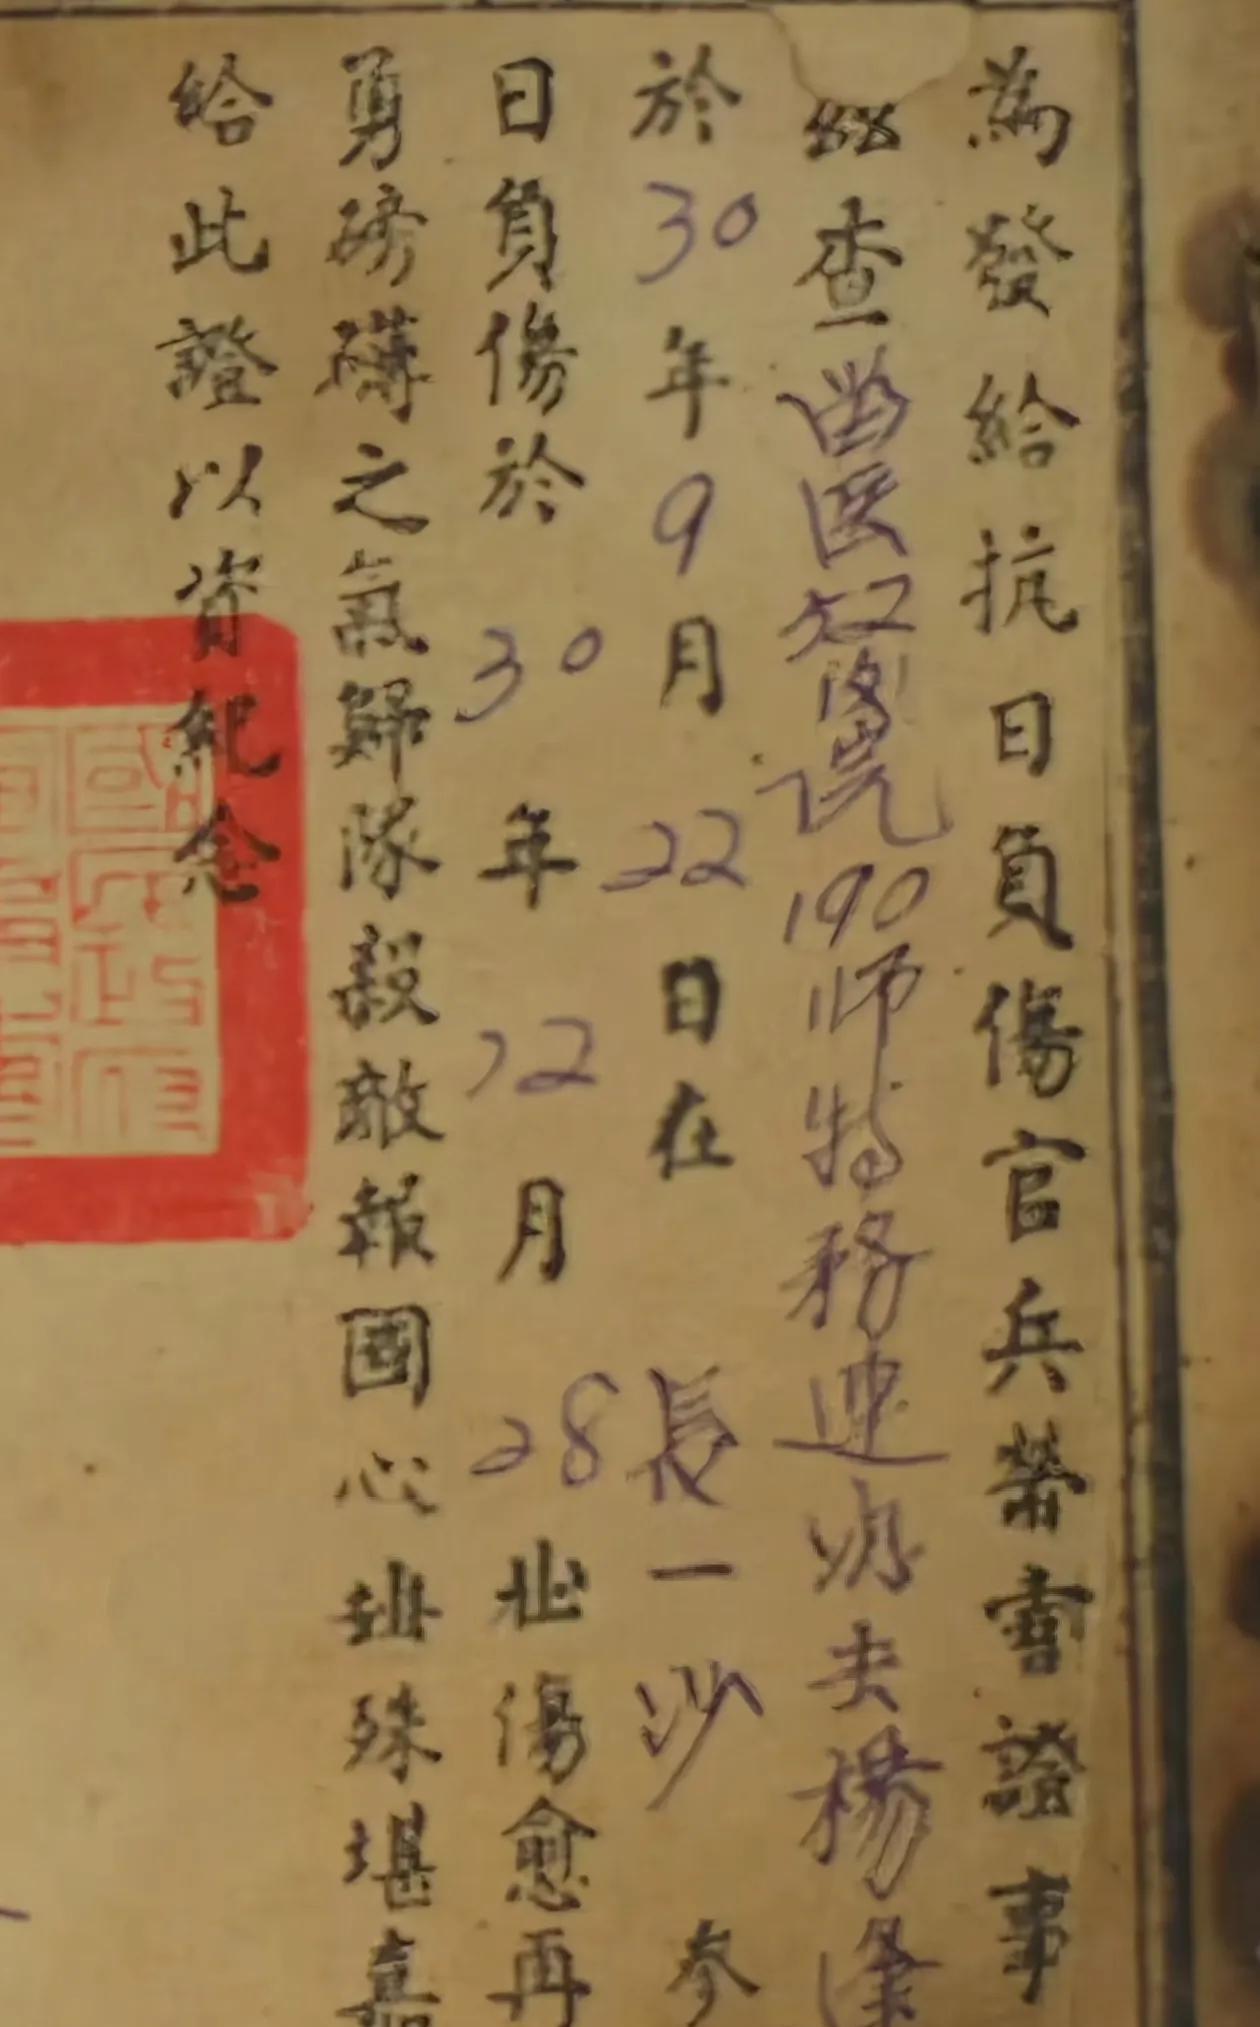 為發給抗日負傷官兵榮譽證事
茲查一 190师特務連 夫楊
於30年9月22日在長一沙参
日負傷於30年12月28 傷愈再
勇磅礴之氣歸隊殺敵報國心 殊堪嘉
給此證以資紀念